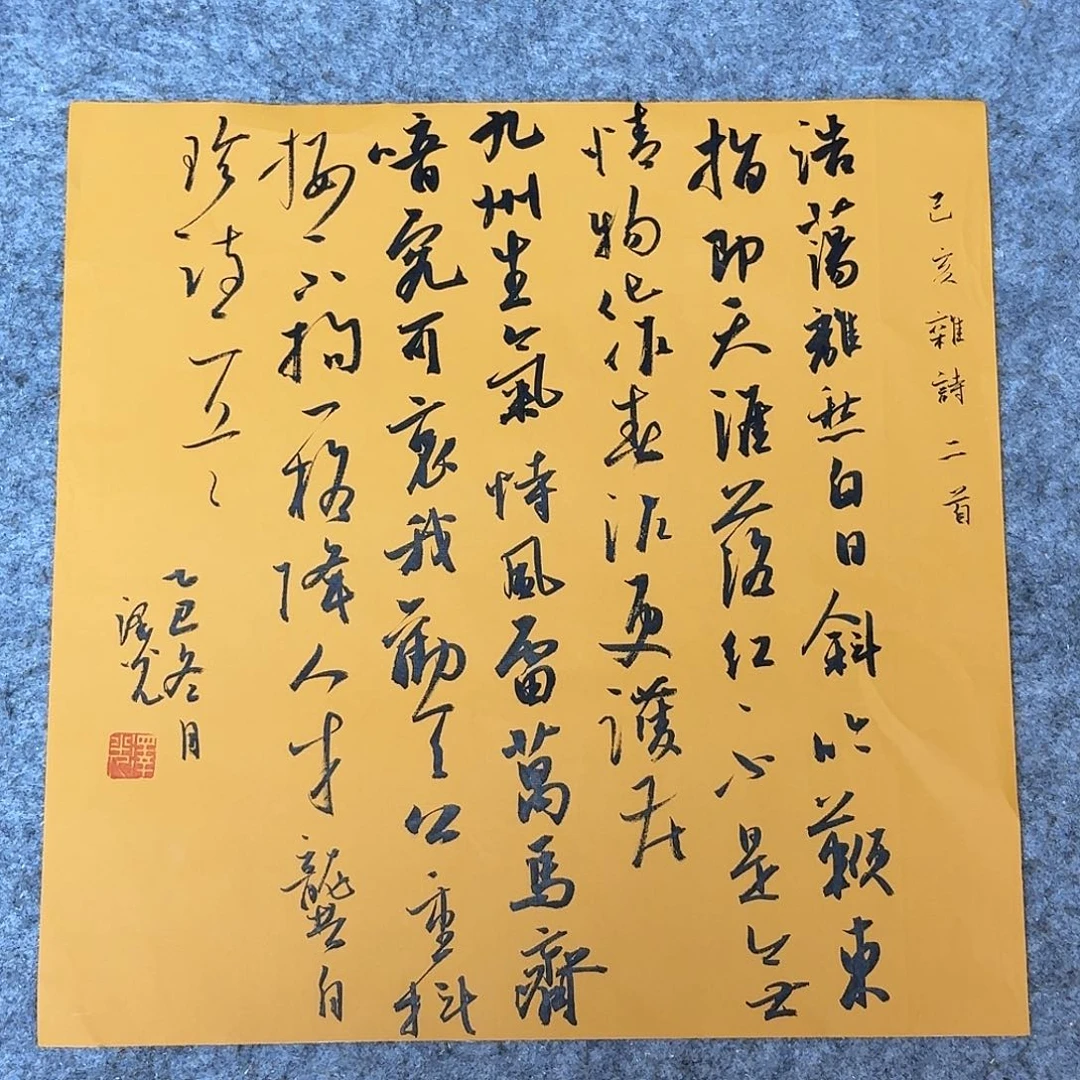 己亥雜詩二首
浩蕩離愁白日斜吟鞭東
指即天涯落紅不是無
情物化作春泥更護花
九州生氣恃風雷萬馬齊
喑究可哀我勸天公重抖
擻不拘一格降人才龔自
珍詩
乙巳冬月
澤光
澤光